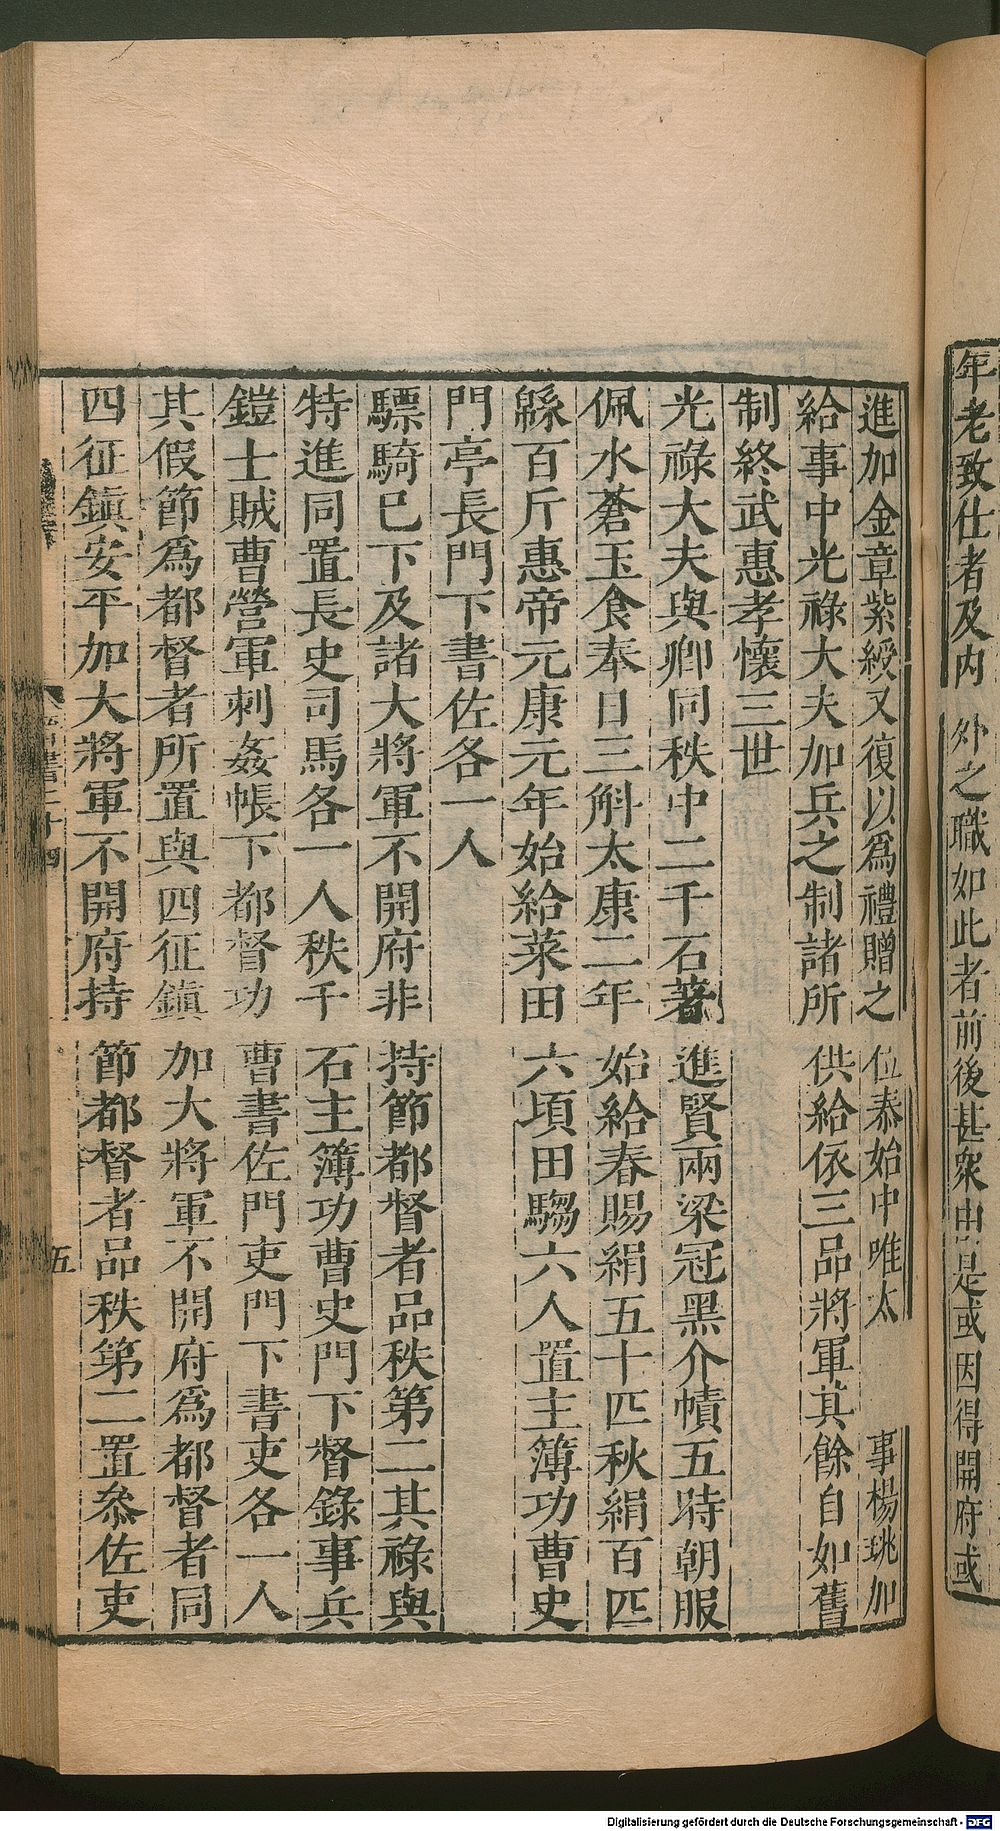 年老致仕者及内外之職如此者前後甚衆由是或因得開府或
進加金章紫綬又復以爲禮贈之位泰始中唯太 事楊珧加
給事中光祿大夫加兵之制諸所供給依三品將軍其餘自如舊
制終武惠孝懷三世
光祿大夫與卿同秩中二千石著進賢兩梁冠黑介幘五時朝服
佩水蒼玉食奉日三斛太康二年始給春賜絹五十匹秋絹百匹
緜百斤惠帝元康元年始給菜田六頃田騶六人置主簿功曹史
門亭長門下書佐各一人
驃騎巳下及諸大將軍不開府非持節都督者品秩第二其祿與
特進同置長史司馬各一人秩千石主簿功曹史門下督錄事兵
鎧士賊曹營軍刺姦帳下都督功曹書佐門吏門下書吏各一人
其假節爲都督者所置與四征鎮加大將軍不開府爲都督者同
四征鎮安平加大將軍不開府持節都督者品秩第二置叅佐吏
書二十四
五
Digitalisierung gefördert durch die Deutsche Forschungsgemeinschaft - DFG